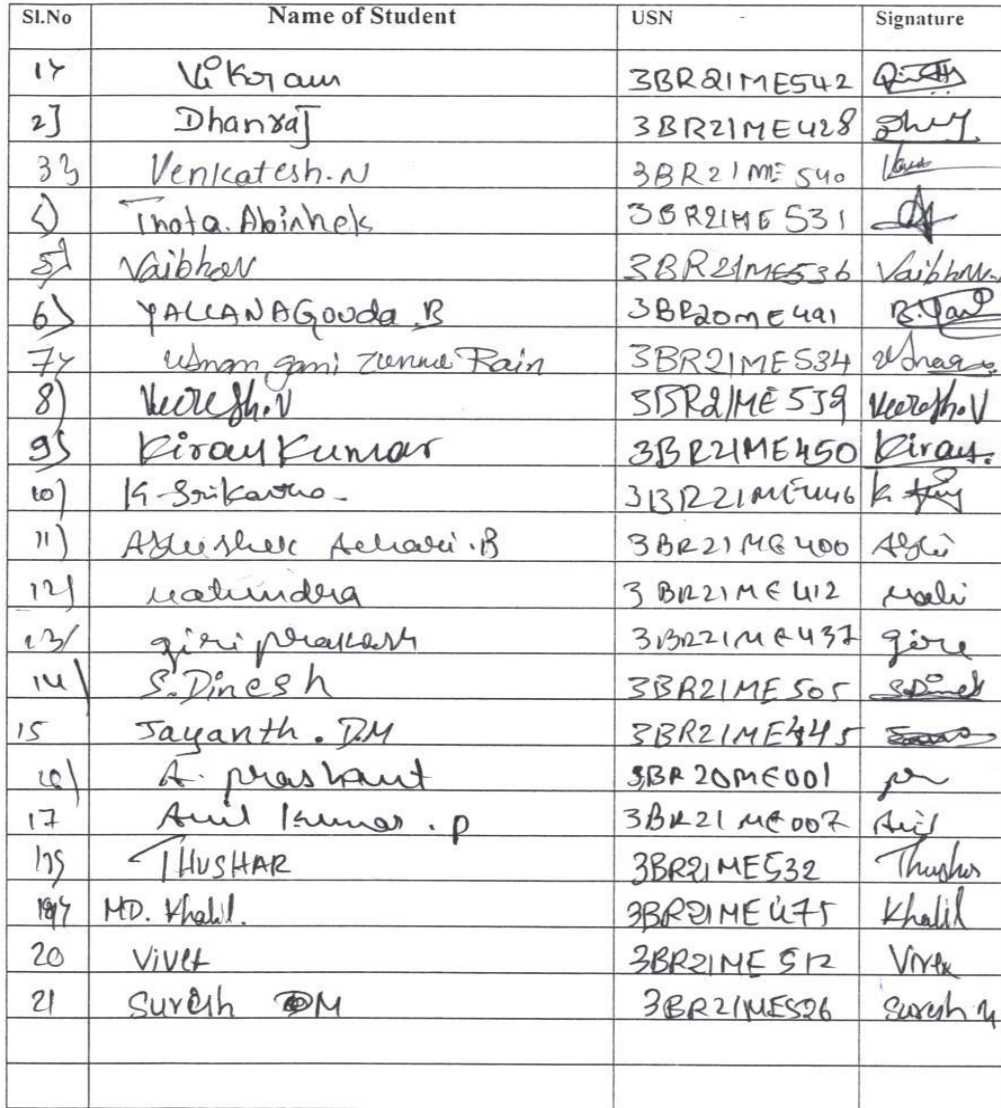 Sl.No Name of Student USN - Signature
1) Vikram 3BR21ME542
2] Dhanraj 3BR21ME428
3) Venkatesh.N 3BR21ME540
Thota. Abishek 3BR21ME531
5) Vaibhav 3BR21ME536 Vaibhav
6) YALLANAGouda B 3BR20ME491 B.Yal
7) Usman gani Zunnu Rain 3BR21ME534 Usman
8) Veeresh.V 3BR21ME539 Veeresh.V
9) Kiran Kumar 3BR21ME450 Kiran.
10) K Srikantha 3BR21ME446 K.
11) Abhishek Achari.B 3BR21ME400 Abhi
12) mahindra 3BR21ME412 mahi
13) giri prakash 3BR21ME437 giri
14) S.Dinesh 3BR21ME505 S.Dines
15 Jayanth. D.M 3BR21ME445
16) A. prashant 3BR20ME001
17 Anil kumar . p 3BR21ME007 Anil
18) THUSHAR 3BR21ME532 Thushar
19) MD. Khalil. 3BR21ME475 Khalil
20 Vivek 3BR21ME512 Vivek
21 Suresh M 3BR21ME526 Suresh M